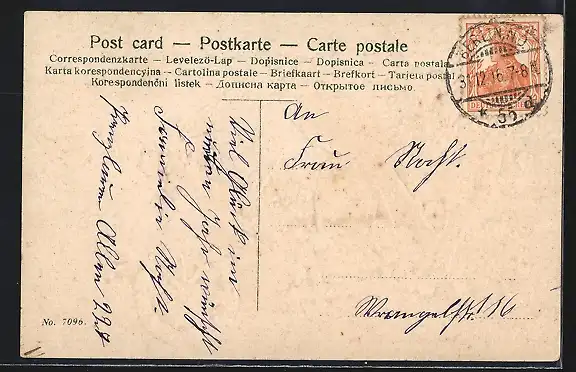 Post card — Postkarte — Carte postale
Correspondenzkarte — Levelező-Lap — Dopisnice — Dopisnica — Carta postala
Karta korespondencyjna — Cartolina postale — Briefkaart — Brefkort — Tarjeta postal
Korespondenční listek — Дописна карта — Открытое письмо
31.12.16.7-8
An
Frau
Wrangelstr 116
Viel Glück im
neuen Jahr wünscht
Familie
No. 7096.